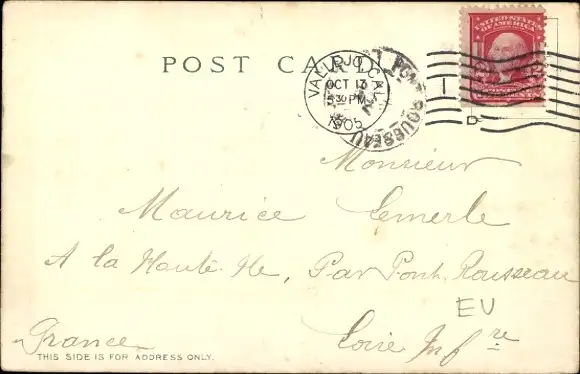 POST CARD
UNITED STATES OF AMERICA
VALLEJO, CAL.
OCT 13
5-30 PM
1905
PONT ROUSSEAU
D
Monsieur
Maurice Lemerle
A la Haute-Ile, Par Pont Rousseau
EU
Loire Infre
France
THIS SIDE IS FOR ADDRESS ONLY.